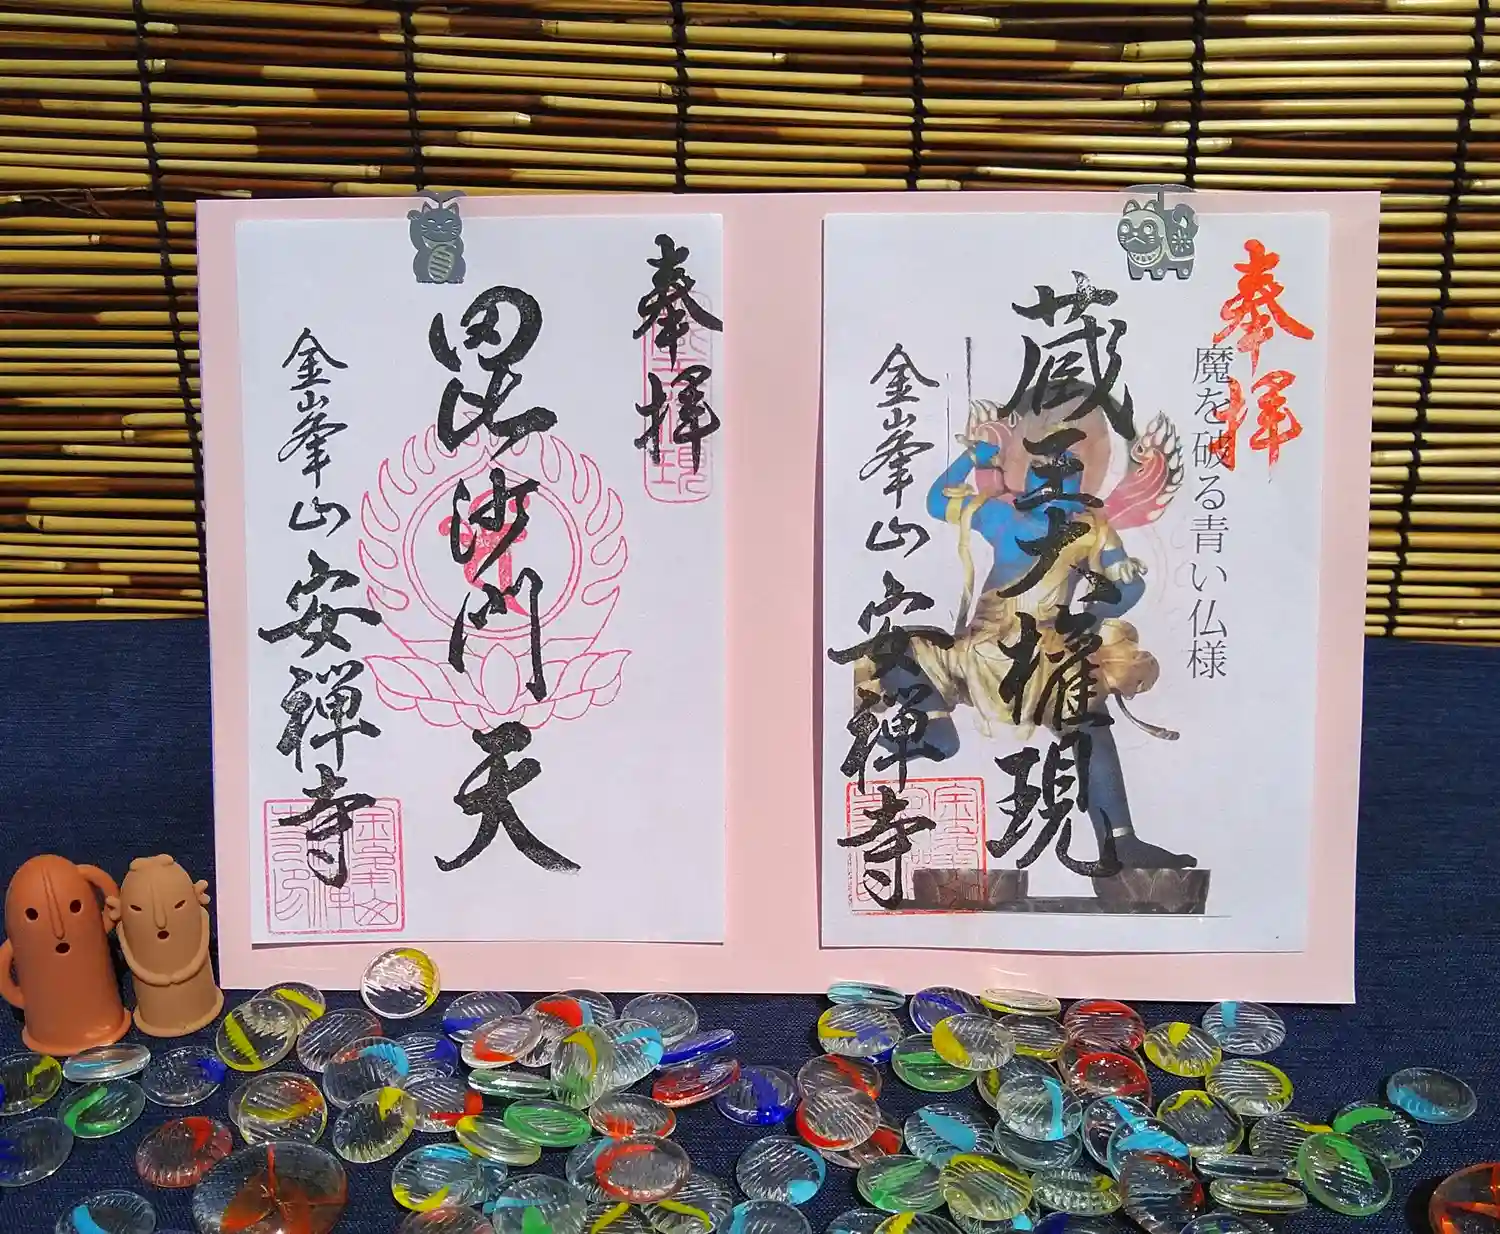 奉拝
蔵王大権現
魔を破る青い仏様
金峯山
安禅寺
奉拝
毘沙門天
金峯山
安禅寺